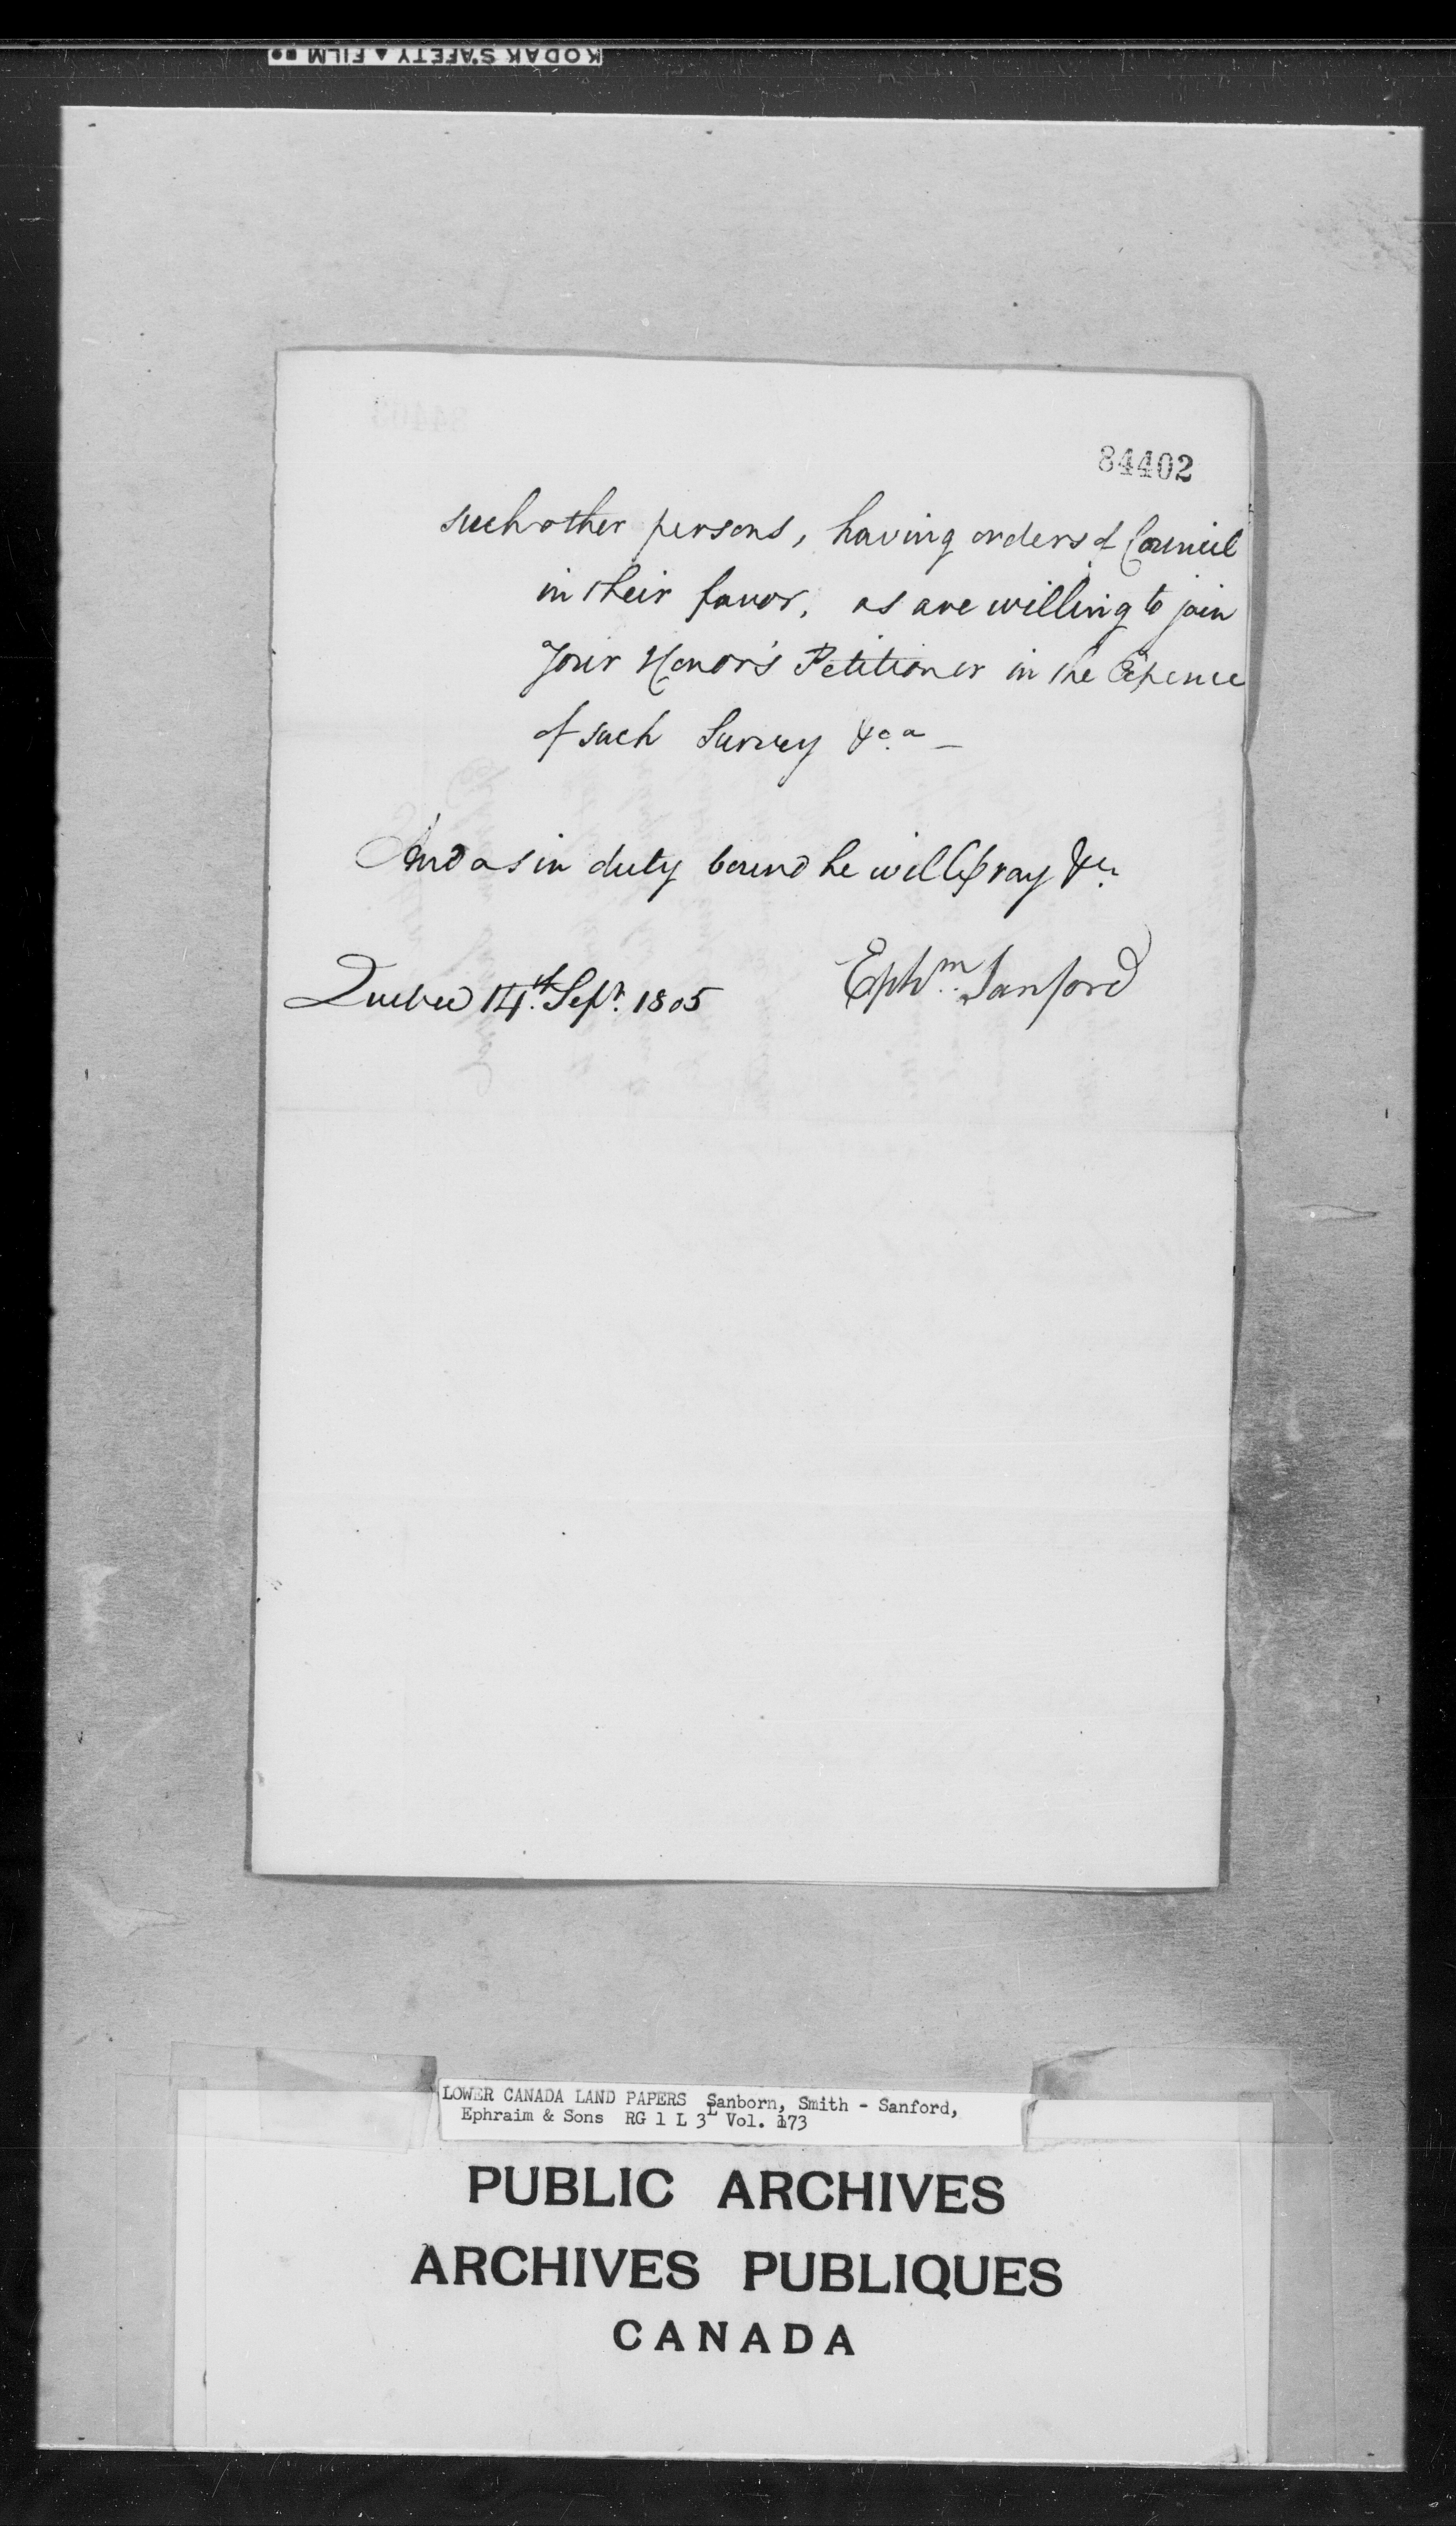 KODAK SAFETY ▲ FILM
84402
such other persons, having orders of Council
in their favor, as are willing to join
Your Honor's Petitioner in the Expence
of such Survey &c.a —
And as in duty bound he will pray &c.
Quebec 14th. Sepr. 1805
Ephm. Sanford
LOWER CANADA LAND PAPERS Sanborn, Smith - Sanford,
Ephraim & Sons RG 1 L 3L Vol. 173
PUBLIC ARCHIVES
ARCHIVES PUBLIQUES
CANADA